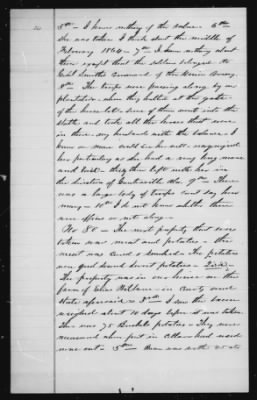 5th - I know nothing of the values 6th
She was taken I think about the middle of
February 1864 - 7th I know nothing about
them except that the soldiers belonged to
Genl Smiths command of the Union Army.
8th The troops were passing along by our
plantation - when they halted at the gate
of the horse lot - Some of them went into the
stable and took all the horses that were
in there - my husbands with the balance - I
knew our mare well - I
her particularly as she had a very long mane
and tail - they then left with her in
the direction of 9th There
was a large body of troops cant say how
many - 10th I do not know whether there
were officers or not along -
No 80 - The next property that was
taken was meat and potatoes - the
meat was cured & smoked - The potatoes
were good sound sweet potatoes - 2nd -
The property was in our house on the
farm of in County and
State aforesaid - 3rd I saw the bacon
weighed about 10 days before it was taken.
The was 75 Bushels potatoes - They were
measured when put in cellar & had used
none out - 5th was worth 25 cts